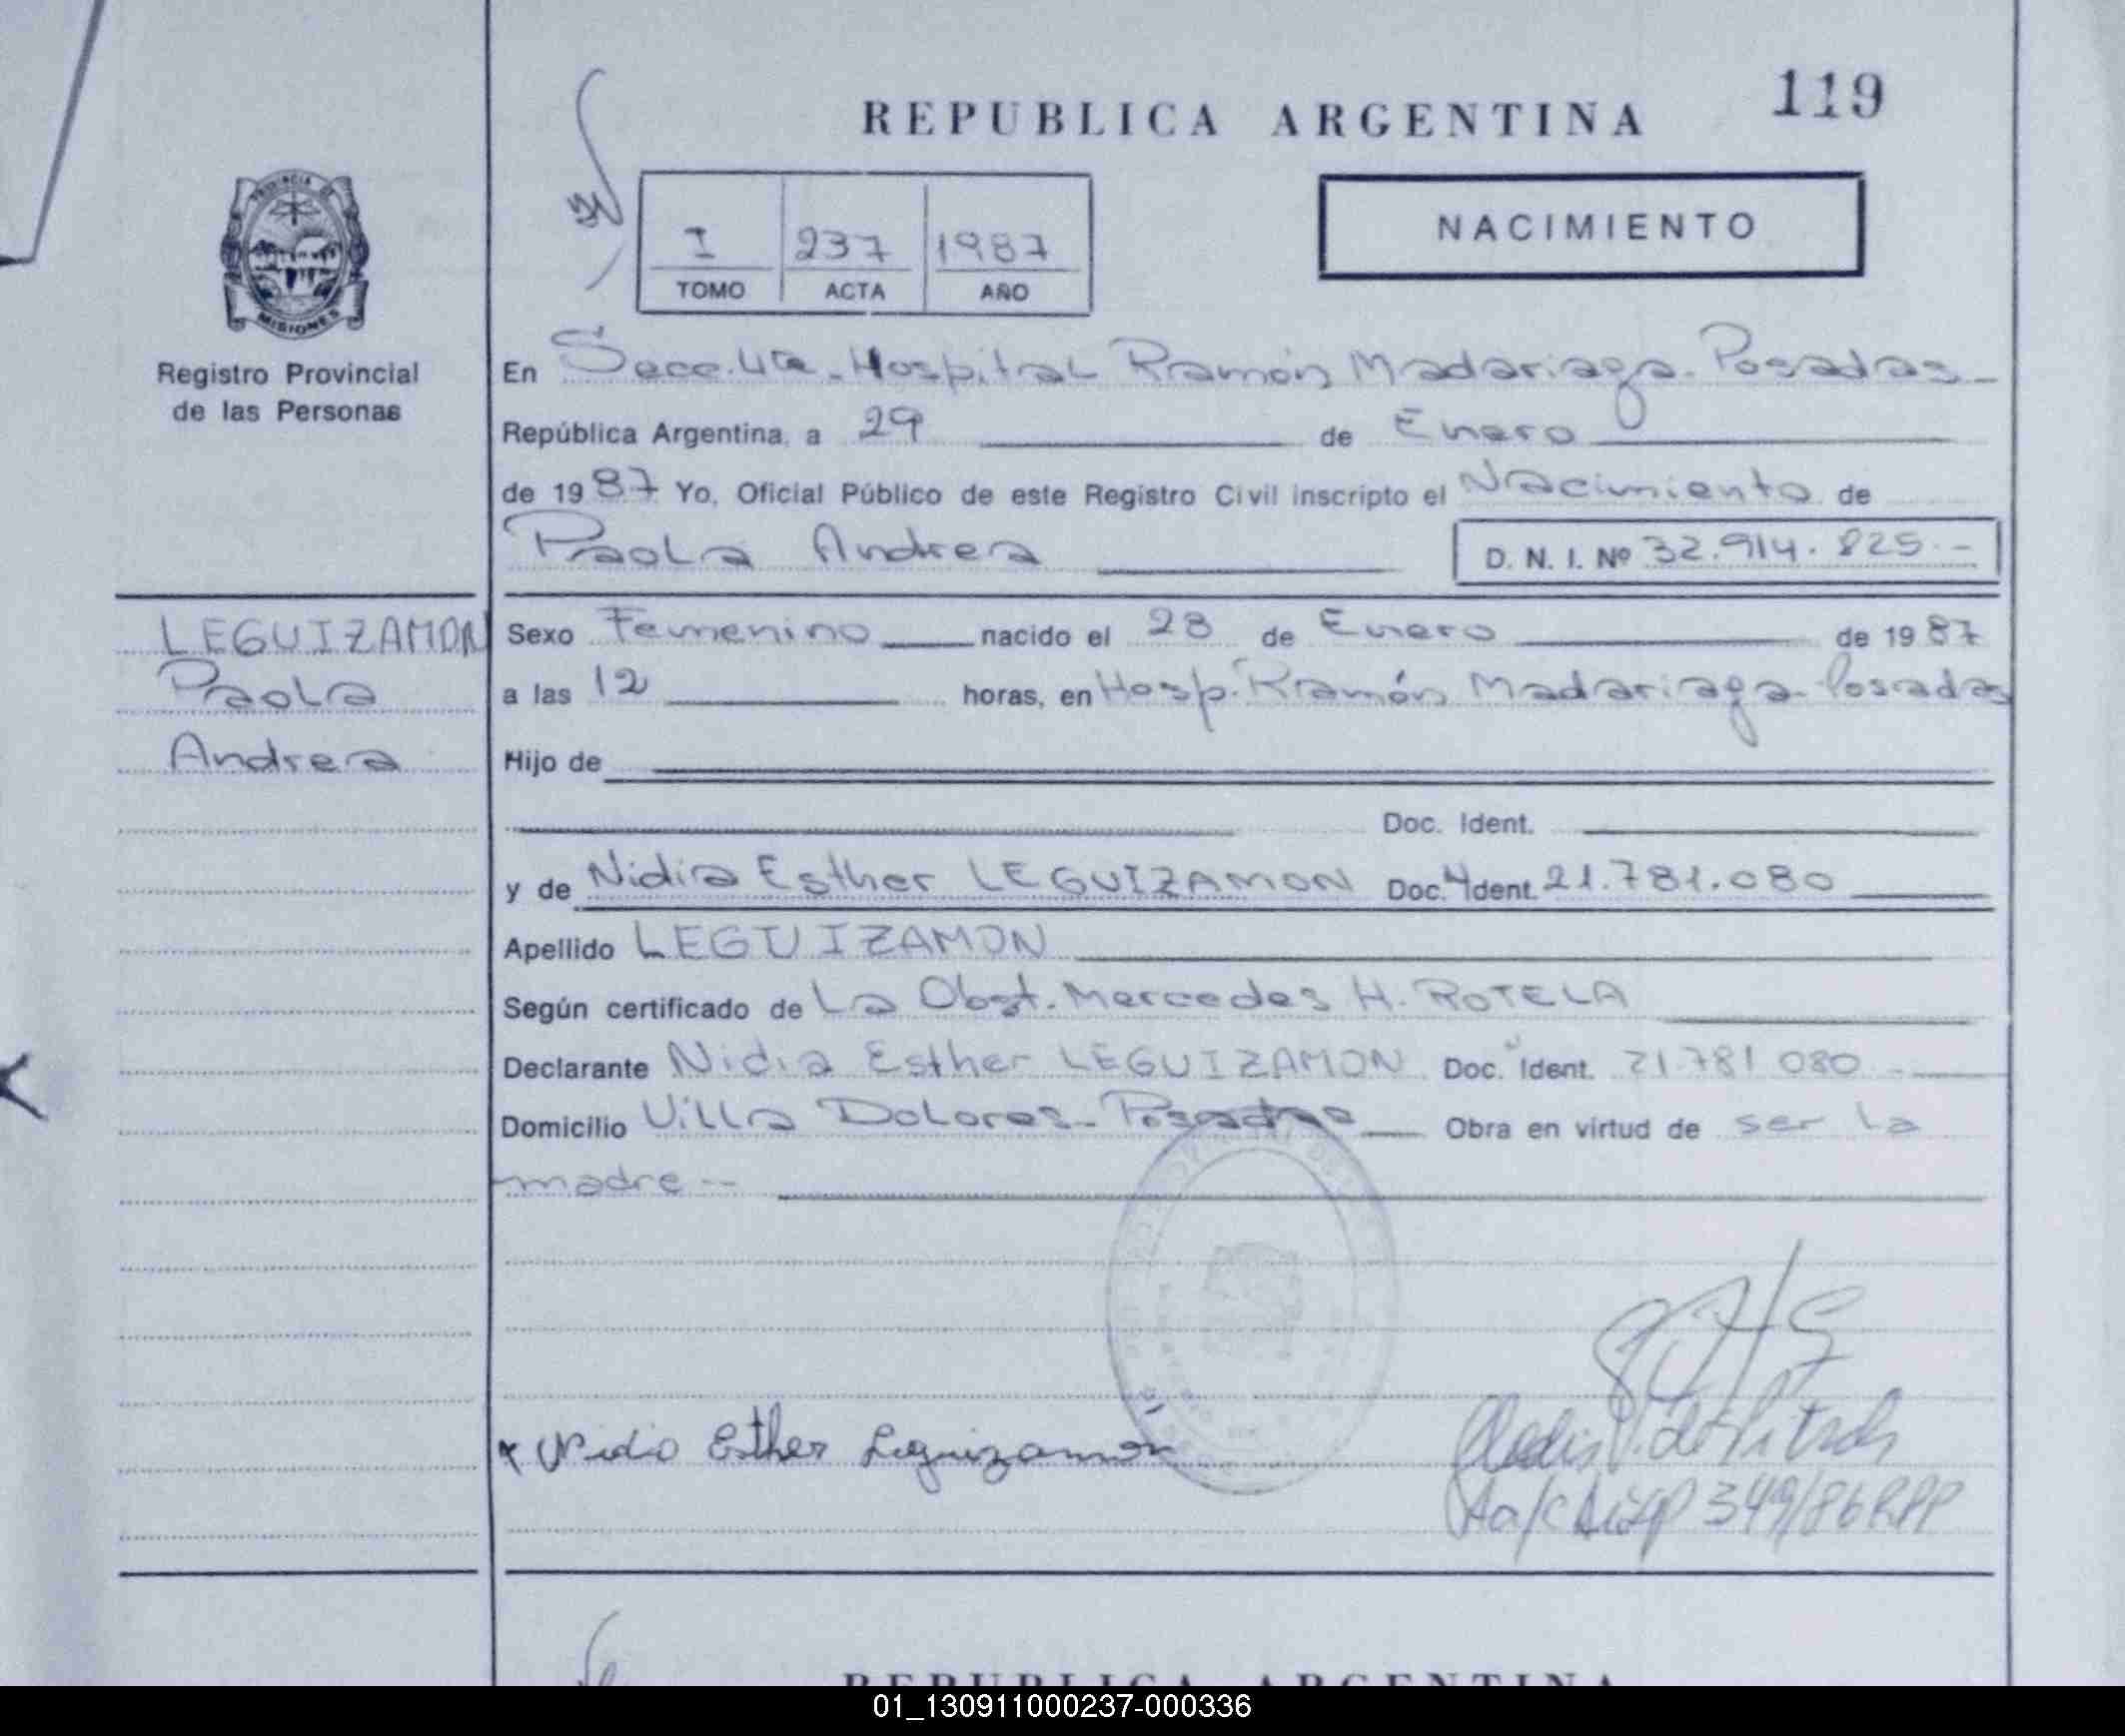 REPUBLICA ARGENTINA 119
I 237 1987
TOMO ACTA AÑO
NACIMIENTO
PROVINCIA DE
MISIONES
Registro Provincial
de las Personas
En Secc. 4ta. Hospital Ramón Madariaga. Posadas
República Argentina, a 29 de Enero
de 1987 Yo, Oficial Público de este Registro Civil inscripto el Nacimiento de
Paola Andrea D. N. I. Nº 32.914.825.-
LEGUIZAMON
Paola
Andrea
Sexo Femenino nacido el 28 de Enero de 1987
a las 12 horas, en Hosp. Ramón Madariaga. Posadas
Hijo de
Doc. Ident.
y de Nidia Esther LEGUIZAMON Doc. Ident. 21.781.080
Apellido LEGUIZAMON
Según certificado de La Obst. Mercedes H. ROTELA
Declarante Nidia Esther LEGUIZAMON Doc. Ident. 21.781.080
Domicilio Villa Dolores - Posadas Obra en virtud de ser la
madre --
Nidia Esther Leguizamón
349/86 RPP
REPUBLICA ARGENTINA
01_130911000237-000336